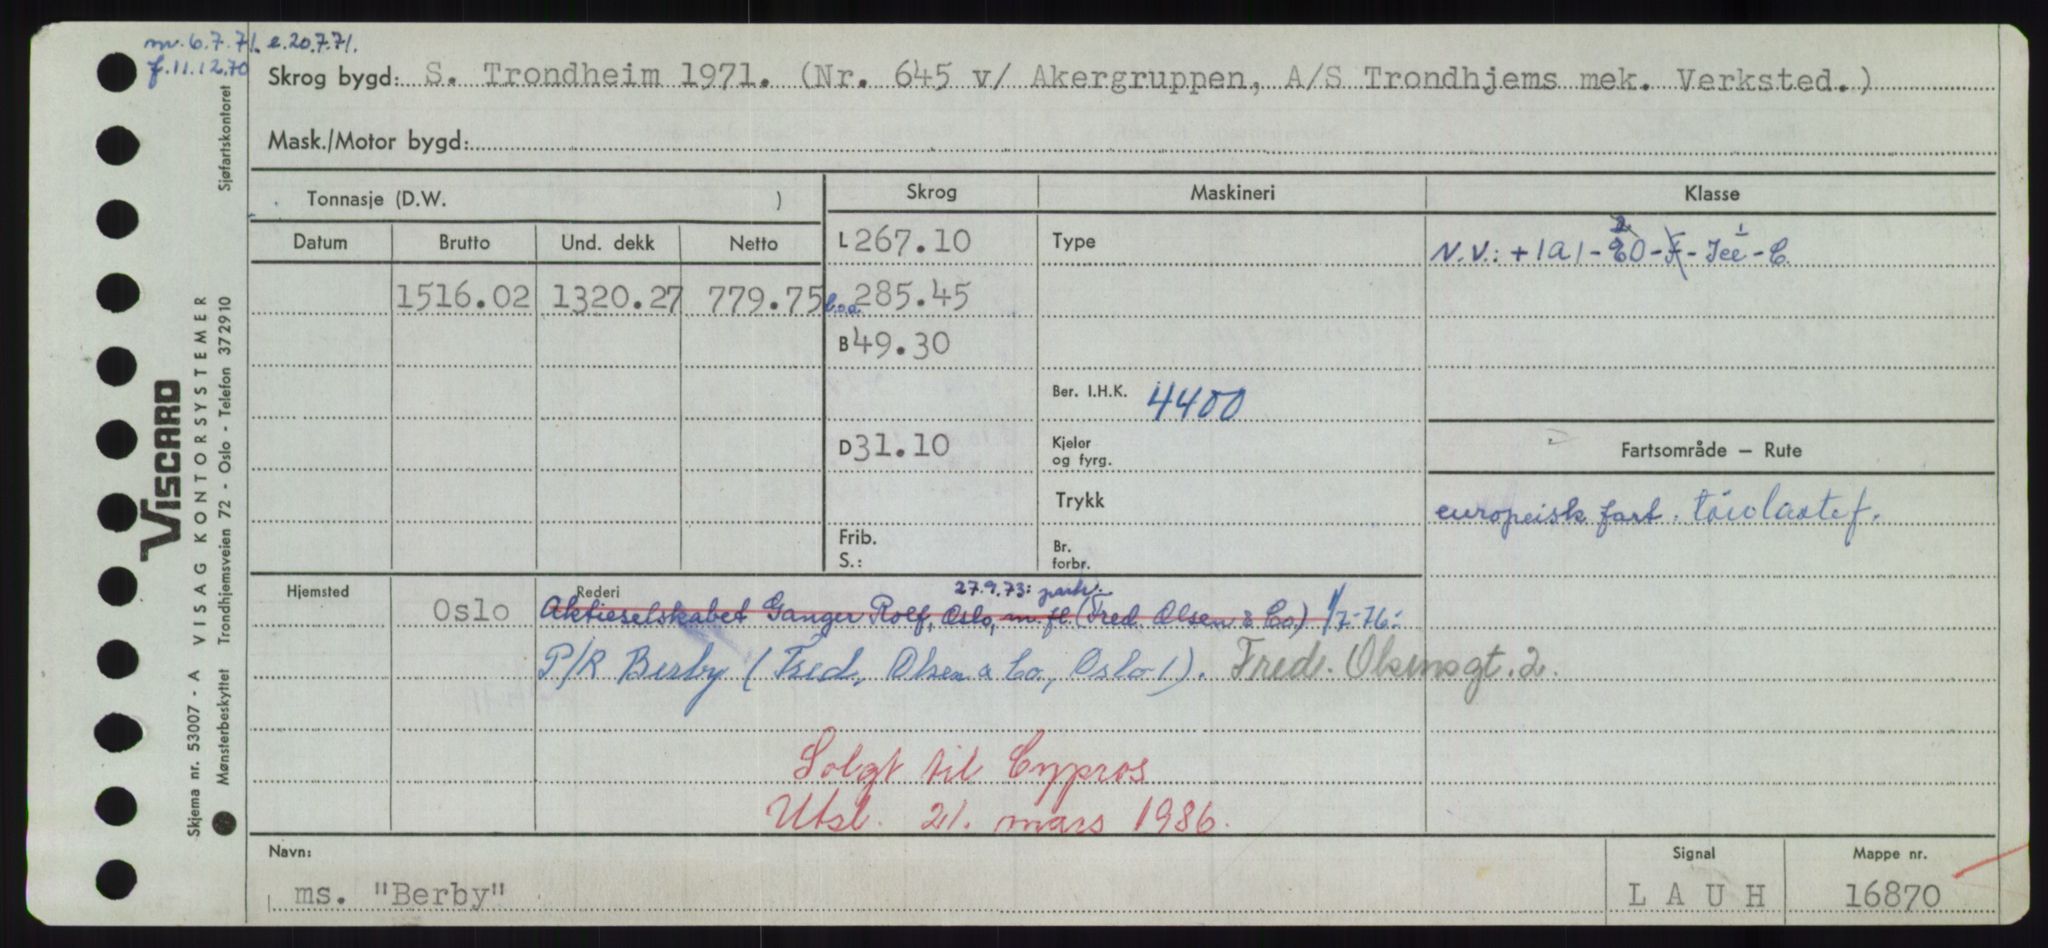 m. 6.7.71. e. 20.7.71.
f. 11.12.70
Skrog bygd: S. Trondheim 1971. (Nr. 645 v/ Akergruppen, A/S Trondhjems mek. Verksted.)
Mask./Motor bygd:
Tonnasje (D.W. )
Skrog
Maskineri
Klasse
Datum
Brutto
Und. dekk
Netto
L 267.10
Type
N.V.: + 1A1 -
1516.02
1320.27
779.75
l.o.a. 285.45
B 49.30
Ber. I.H.K. 4400
D 31.10
Kjeler og fyrg.
Fartsområde – Rute
Trykk
europeisk fart.
Frib.
S.:
Br. forbr.
Hjemsted
Rederi
27.9.73: partr.:
Oslo
Aktieselskabet Ganger Rolf, Oslo, m. fl. (Fred. Olsen & Co.) 1/7-76:
P/R Berby (Fred. Olsen & Co., Oslo 1). Fred. Olsensgt. 2.
Solgt til Cypros
Utsl. 21. mars 1986.
Navn:
ms. "Berby"
Signal
LAUH
Mappe nr.
16870
VISCARD
VISAG KONTORSYSTEMER
Skjema nr. 53007 - A
Mønsterbeskyttet
Trondhjemsveien 72 - Oslo - Telefon 372910
Sjøfartskontoret